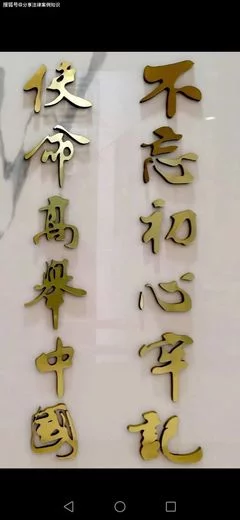 搜狐号@分享法律案例知识
不忘初心牢記
使命高舉中國